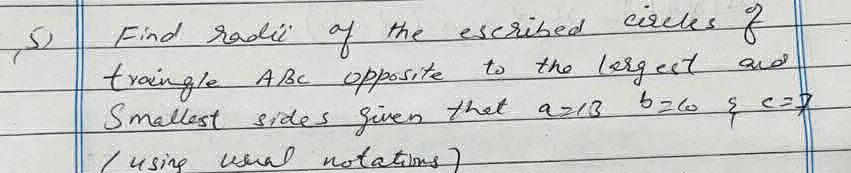 5) Find radii of the escribed circles of
traingle ABC opposite to the largest and
Smallest sides given that a=13 b=10 & c=7
(using usual notations)